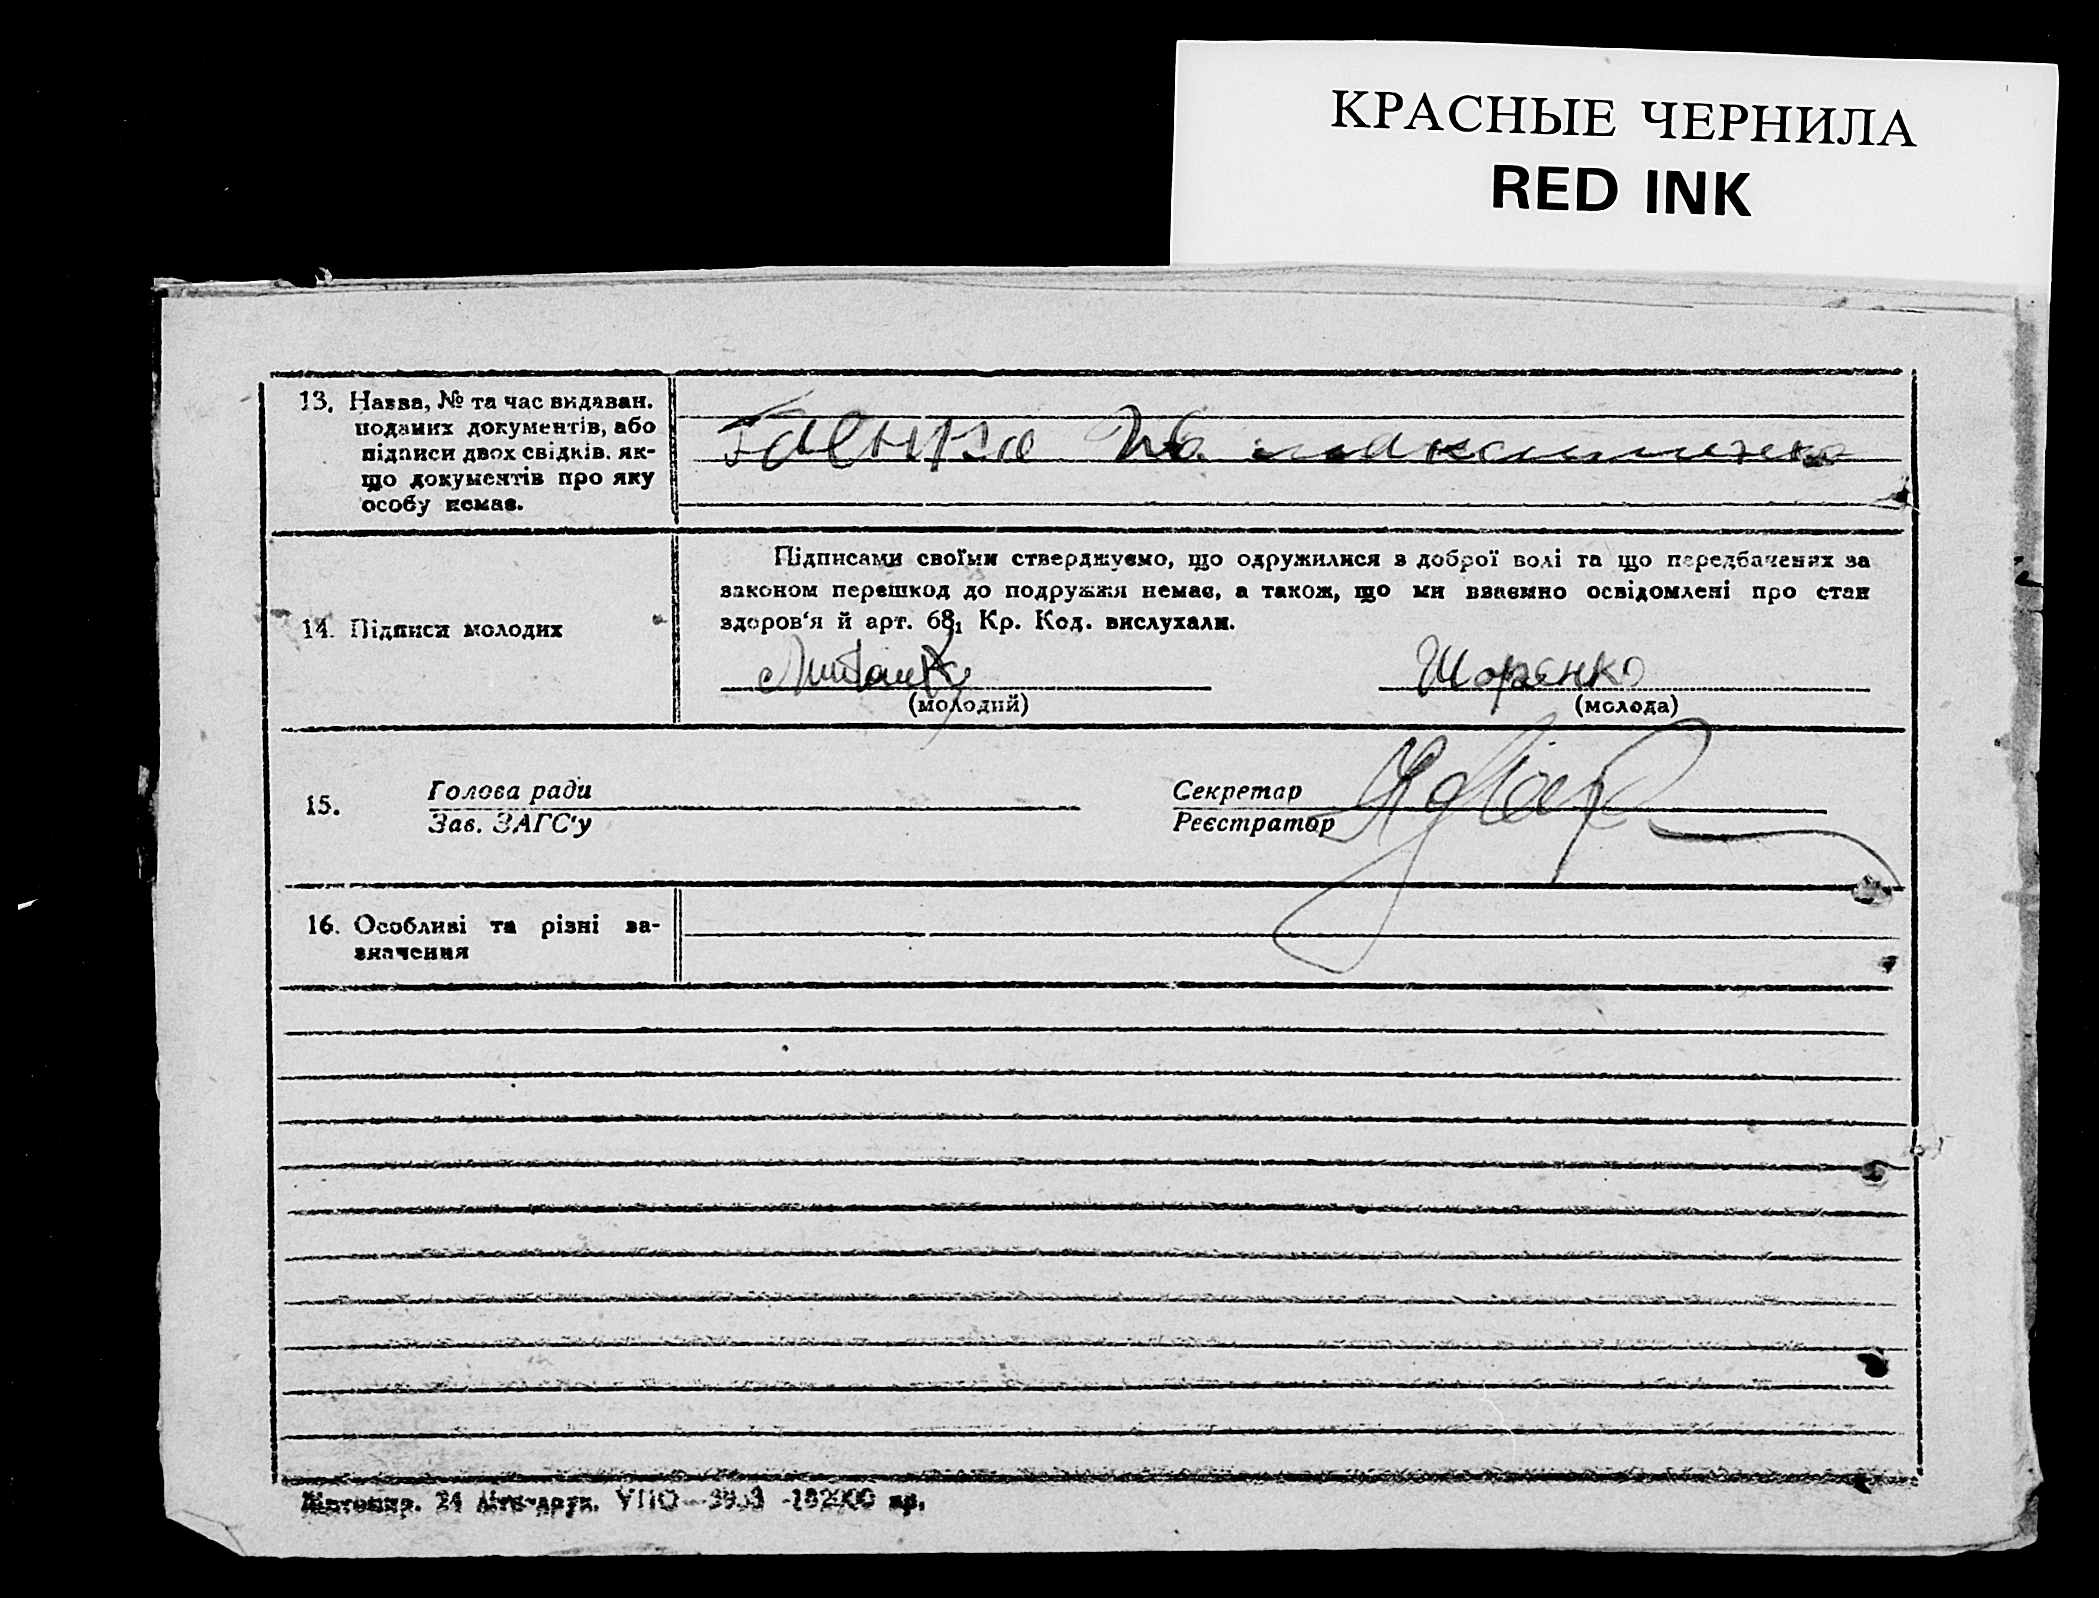 КРАСНЫЕ ЧЕРНИЛА
RED INK
13. Назва, № та час видаван.
поданих документів, або
підписи двох свідків. як-
що документів про яку
особу немає.
та
Підписами своїми стверджуємо, що одружилися з доброї волі та що передбачених за
законом перешкод до подружжя немає, а також, що ми взаємно освідомлені про стан
здоров'я й арт. 68₁ Кр. Код. вислухали.
14. Підписи молодих
Шоренко
(молодий)
(молода)
15.
Голова ради
Зав. ЗАГС'у
Секретар
Реєстратор
16. Особливі та різні за-
значення
24 УПО